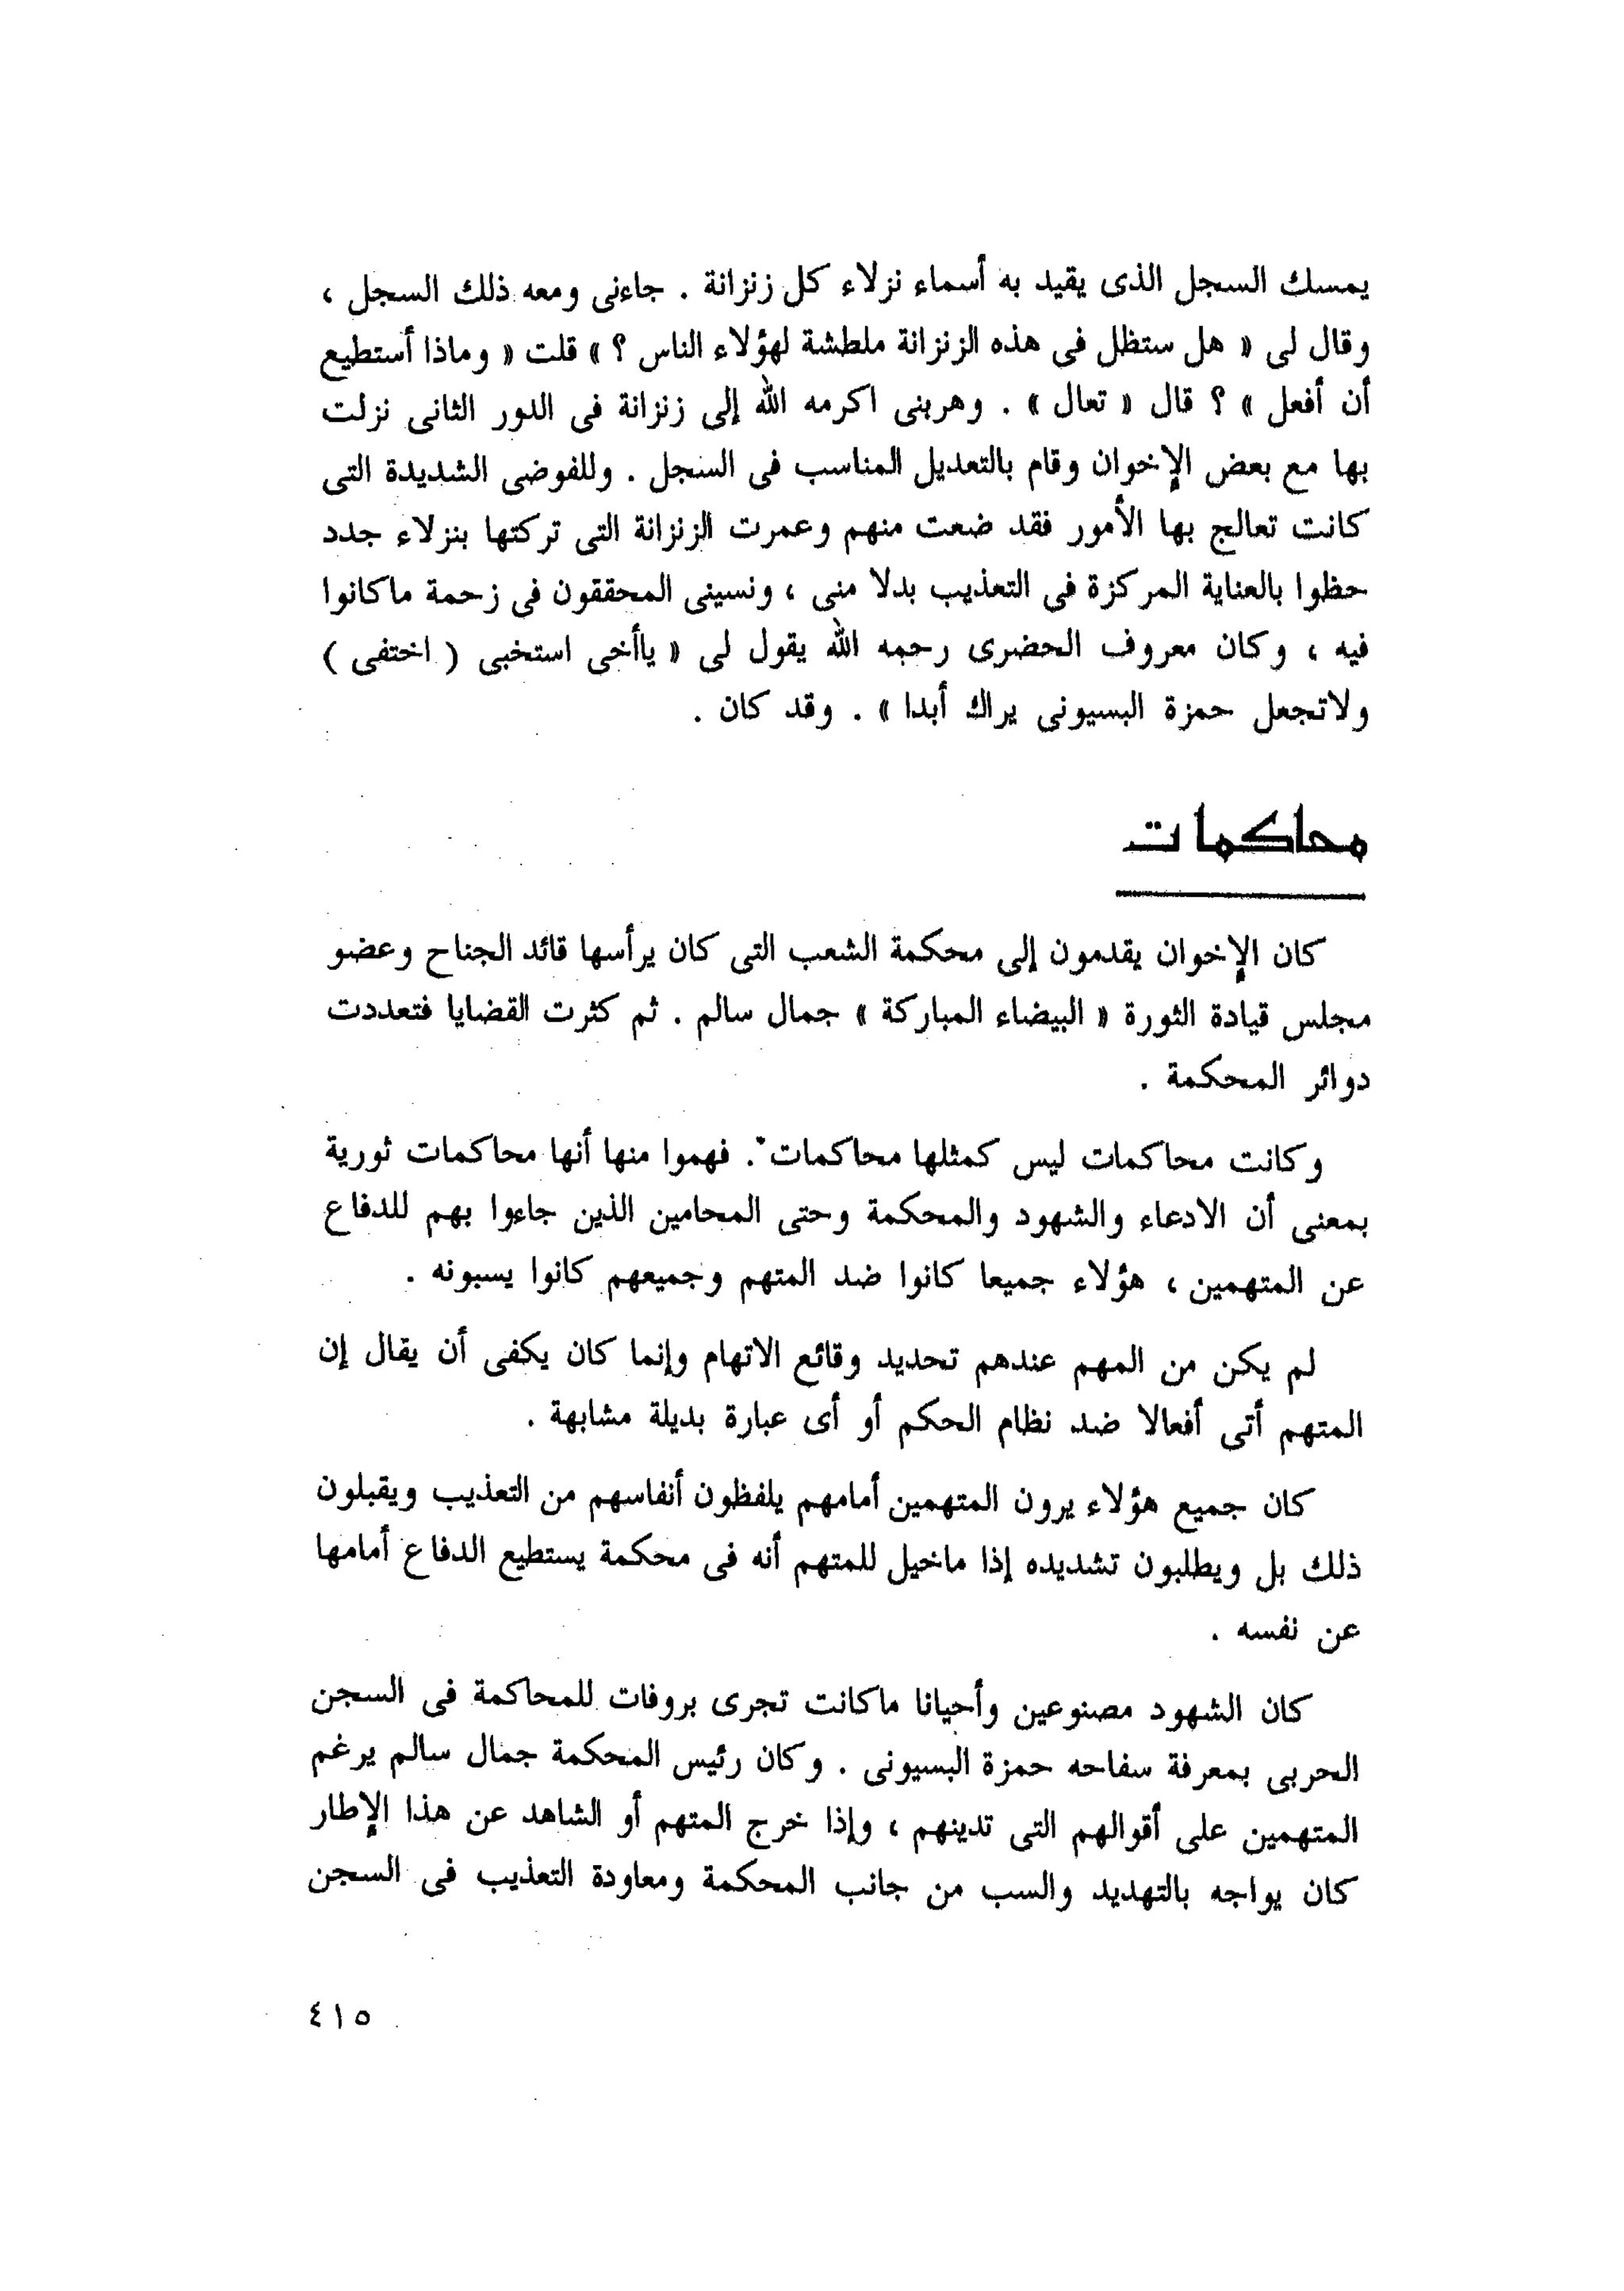 يمسك السجل الذى يقيد به أسماء نزلاء كل زنزانة . جاءنى ومعه ذلك السجل ،
وقال لى « هل ستظل فى هذه الزنزانة ملطشة لهؤلاء الناس ؟ » قلت « وماذا أستطيع
أن أفعل » ؟ قال « تعال » . وهربنى اكرمه الله إلى زنزانة فى الدور الثانى نزلت
بها مع بعض الإخوان وقام بالتعديل المناسب فى السجل . وللفوضى الشديدة التى
كانت تعالج بها الأمور فقد ضعت منهم وعمرت الزنزانة التى تركتها بنزلاء جدد
حظوا بالعناية المركزة فى التعذيب بدلا منى ، ونسينى المحققون فى زحمة ماكانوا
فيه ، وكان معروف الحضرى رحمه الله يقول لى « ياأخى استخبى ( اختفى )
ولاتجعل حمزة البسيونى يراك أبدا » . وقد كان .
محاكمات
كان الإخوان يقدمون إلى محكمة الشعب التى كان يرأسها قائد الجناح وعضو
مجلس قيادة الثورة « البيضاء المباركة » جمال سالم . ثم كثرت القضايا فتعددت
دوائر المحكمة .
وكانت محاكمات ليس كمثلها محاكمات . فهموا منها أنها محاكمات ثورية
بمعنى أن الادعاء والشهود والمحكمة وحتى المحامين الذين جاءوا بهم للدفاع
عن المتهمين ، هؤلاء جميعا كانوا ضد المتهم وجميعهم كانوا يسبونه .
لم يكن من المهم عندهم تحديد وقائع الاتهام وإنما كان يكفى أن يقال إن
المتهم أتى أفعالا ضد نظام الحكم أو أى عبارة بديلة مشابهة .
كان جميع هؤلاء يرون المتهمين أمامهم يلفظون أنفاسهم من التعذيب ويقبلون
ذلك بل ويطلبون تشديده إذا ماخيل للمتهم أنه فى محكمة يستطيع الدفاع أمامها
عن نفسه .
كان الشهود مصنوعين وأحيانا ماكانت تجرى بروفات للمحاكمة فى السجن
الحربى بمعرفة سفاحه حمزة البسيونى . وكان رئيس المحكمة جمال سالم يرغم
المتهمين على أقوالهم التى تدينهم ، وإذا خرج المتهم أو الشاهد عن هذا الإطار
كان يواجه بالتهديد والسب من جانب المحكمة ومعاودة التعذيب فى السجن
٤١٥